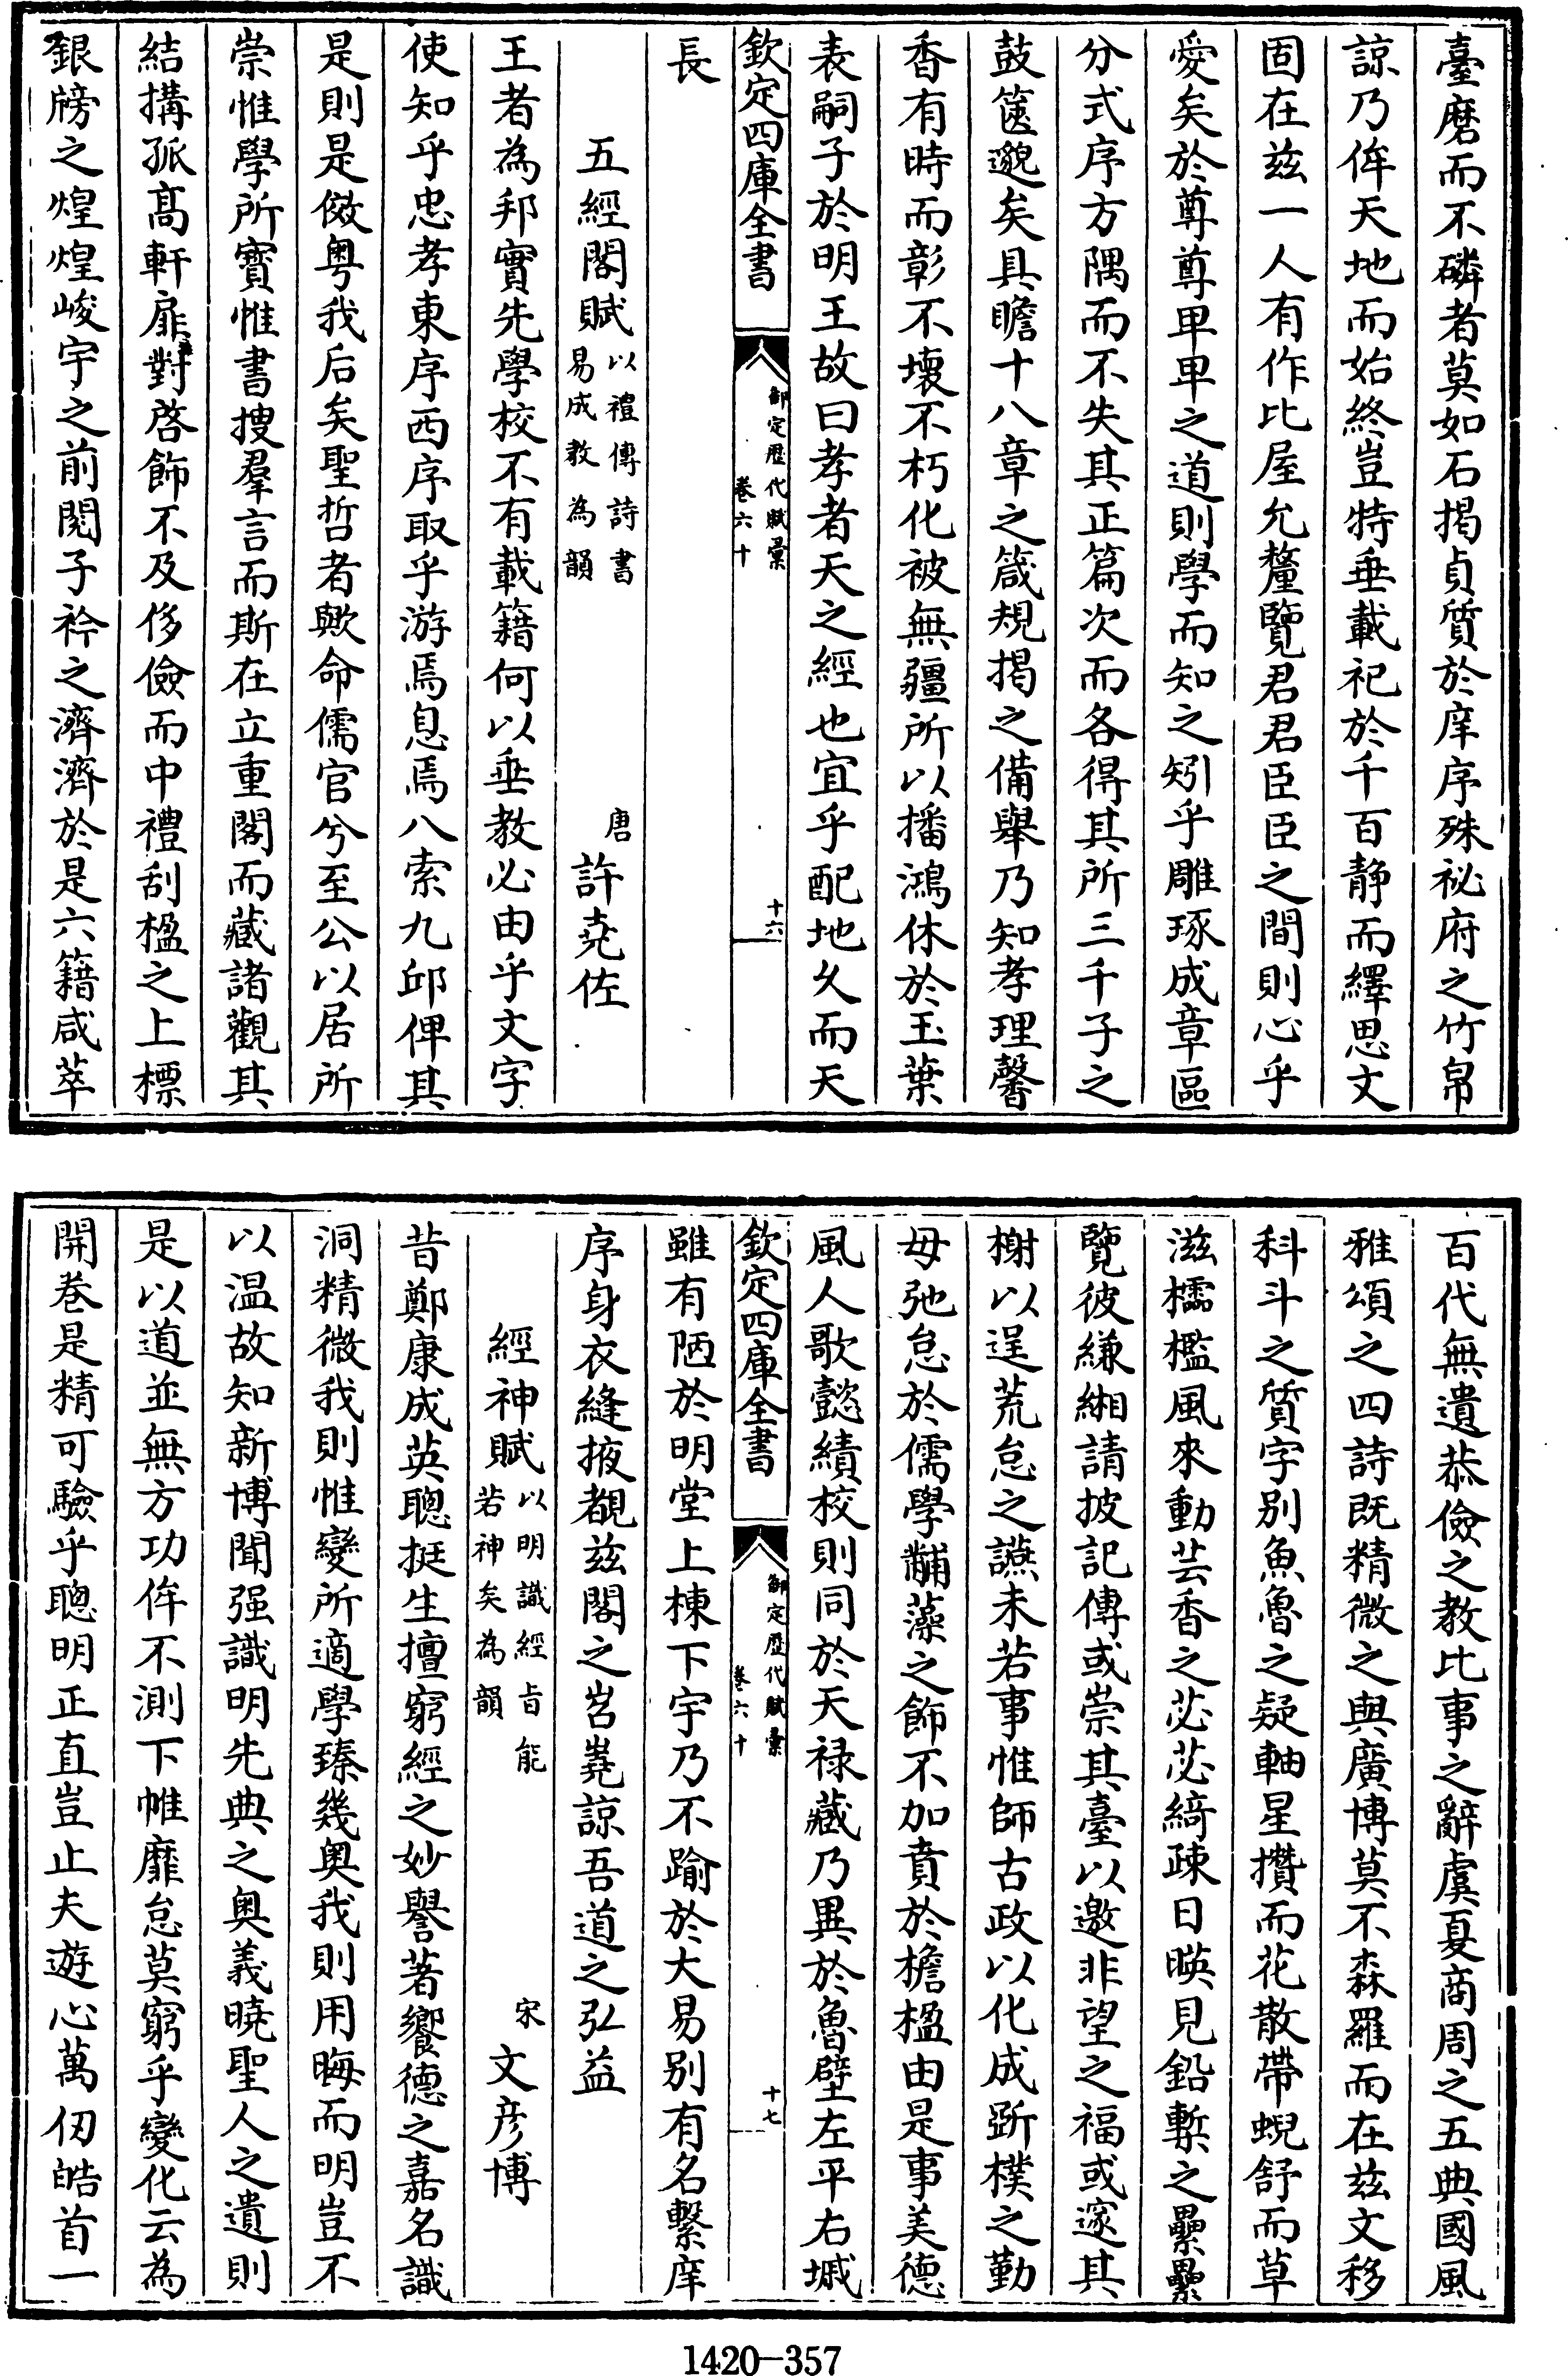 臺磨而不磷者莫如石揭貞質於庠序殊祕府之竹帛
諒乃侔天地而始終豈特垂載祀於千百静而繹思文
固在兹一人有作比屋允釐覽君君臣臣之間則心乎
愛矣於尊尊卑卑之道則學而知之矧乎雕琢成章區
分式序方隅而不失其正篇次而各得其所三千子之
鼓篋邈矣具瞻十八章之箴規揭之備舉乃知孝理馨
香有時而彰不壞不朽化被無疆所以播鴻休於玉葉
表嗣子於明王故曰孝者天之經也宜乎配地乆而天
欽定四庫全書
御定歷代賦彙
卷六十
十六
長
五經閣賦
以禮傳詩書
易成教為韻
唐
許堯佐
王者為邦實先學校不有載籍何以垂教必由乎文字
使知乎忠孝東序西序取乎游焉息焉八索九邱俾其
是則是傚粵我后矣聖哲者歟命儒官兮至公以居所
崇惟學所寳惟書搜羣言而斯在立重閣而藏諸觀其
結搆孤髙軒扉對啓飾不及侈儉而中禮刮楹之上標
銀牓之煌煌峻宇之前閱子衿之濟濟於是六籍咸萃
百代無遺恭儉之教比事之辭虞夏商周之五典國風
雅頌之四詩既精微之與廣博莫不森羅而在兹文移
科斗之質字别魚魯之疑軸星攢而花散帶蜺舒而草
滋櫺檻風來動芸香之苾苾綺疎日暎見鉛槧之纍纍
覽彼縑緗請披記傳或崇其臺以邀非望之福或邃其
榭以逞荒怠之讌未若事惟師古政以化成斲樸之勤
毋弛怠於儒學黼藻之飾不加賁於檐楹由是事美德
風人歌懿績校則同於天禄藏乃異於魯壁左平右墄
欽定四庫全書
御定歷代賦彙
卷六十
十七
雖有陋於明堂上棟下宇乃不踰於大易别有名繫庠
序身衣縫掖覩兹閣之岧嶤諒吾道之弘益
經神賦
以明識經旨能
若神矣為韻
宋
文彦博
昔鄭康成英聰挺生擅窮經之妙譽著饗德之嘉名識
洞精微我則惟變所適學臻幾奥我則用晦而明豈不
以温故知新博聞强識明先典之奥義曉聖人之遺則
是以道並無方功侔不測下帷靡怠莫窮乎變化云為
開卷是精可驗乎聰明正直豈止夫遊心萬仞皓首一
1420-357